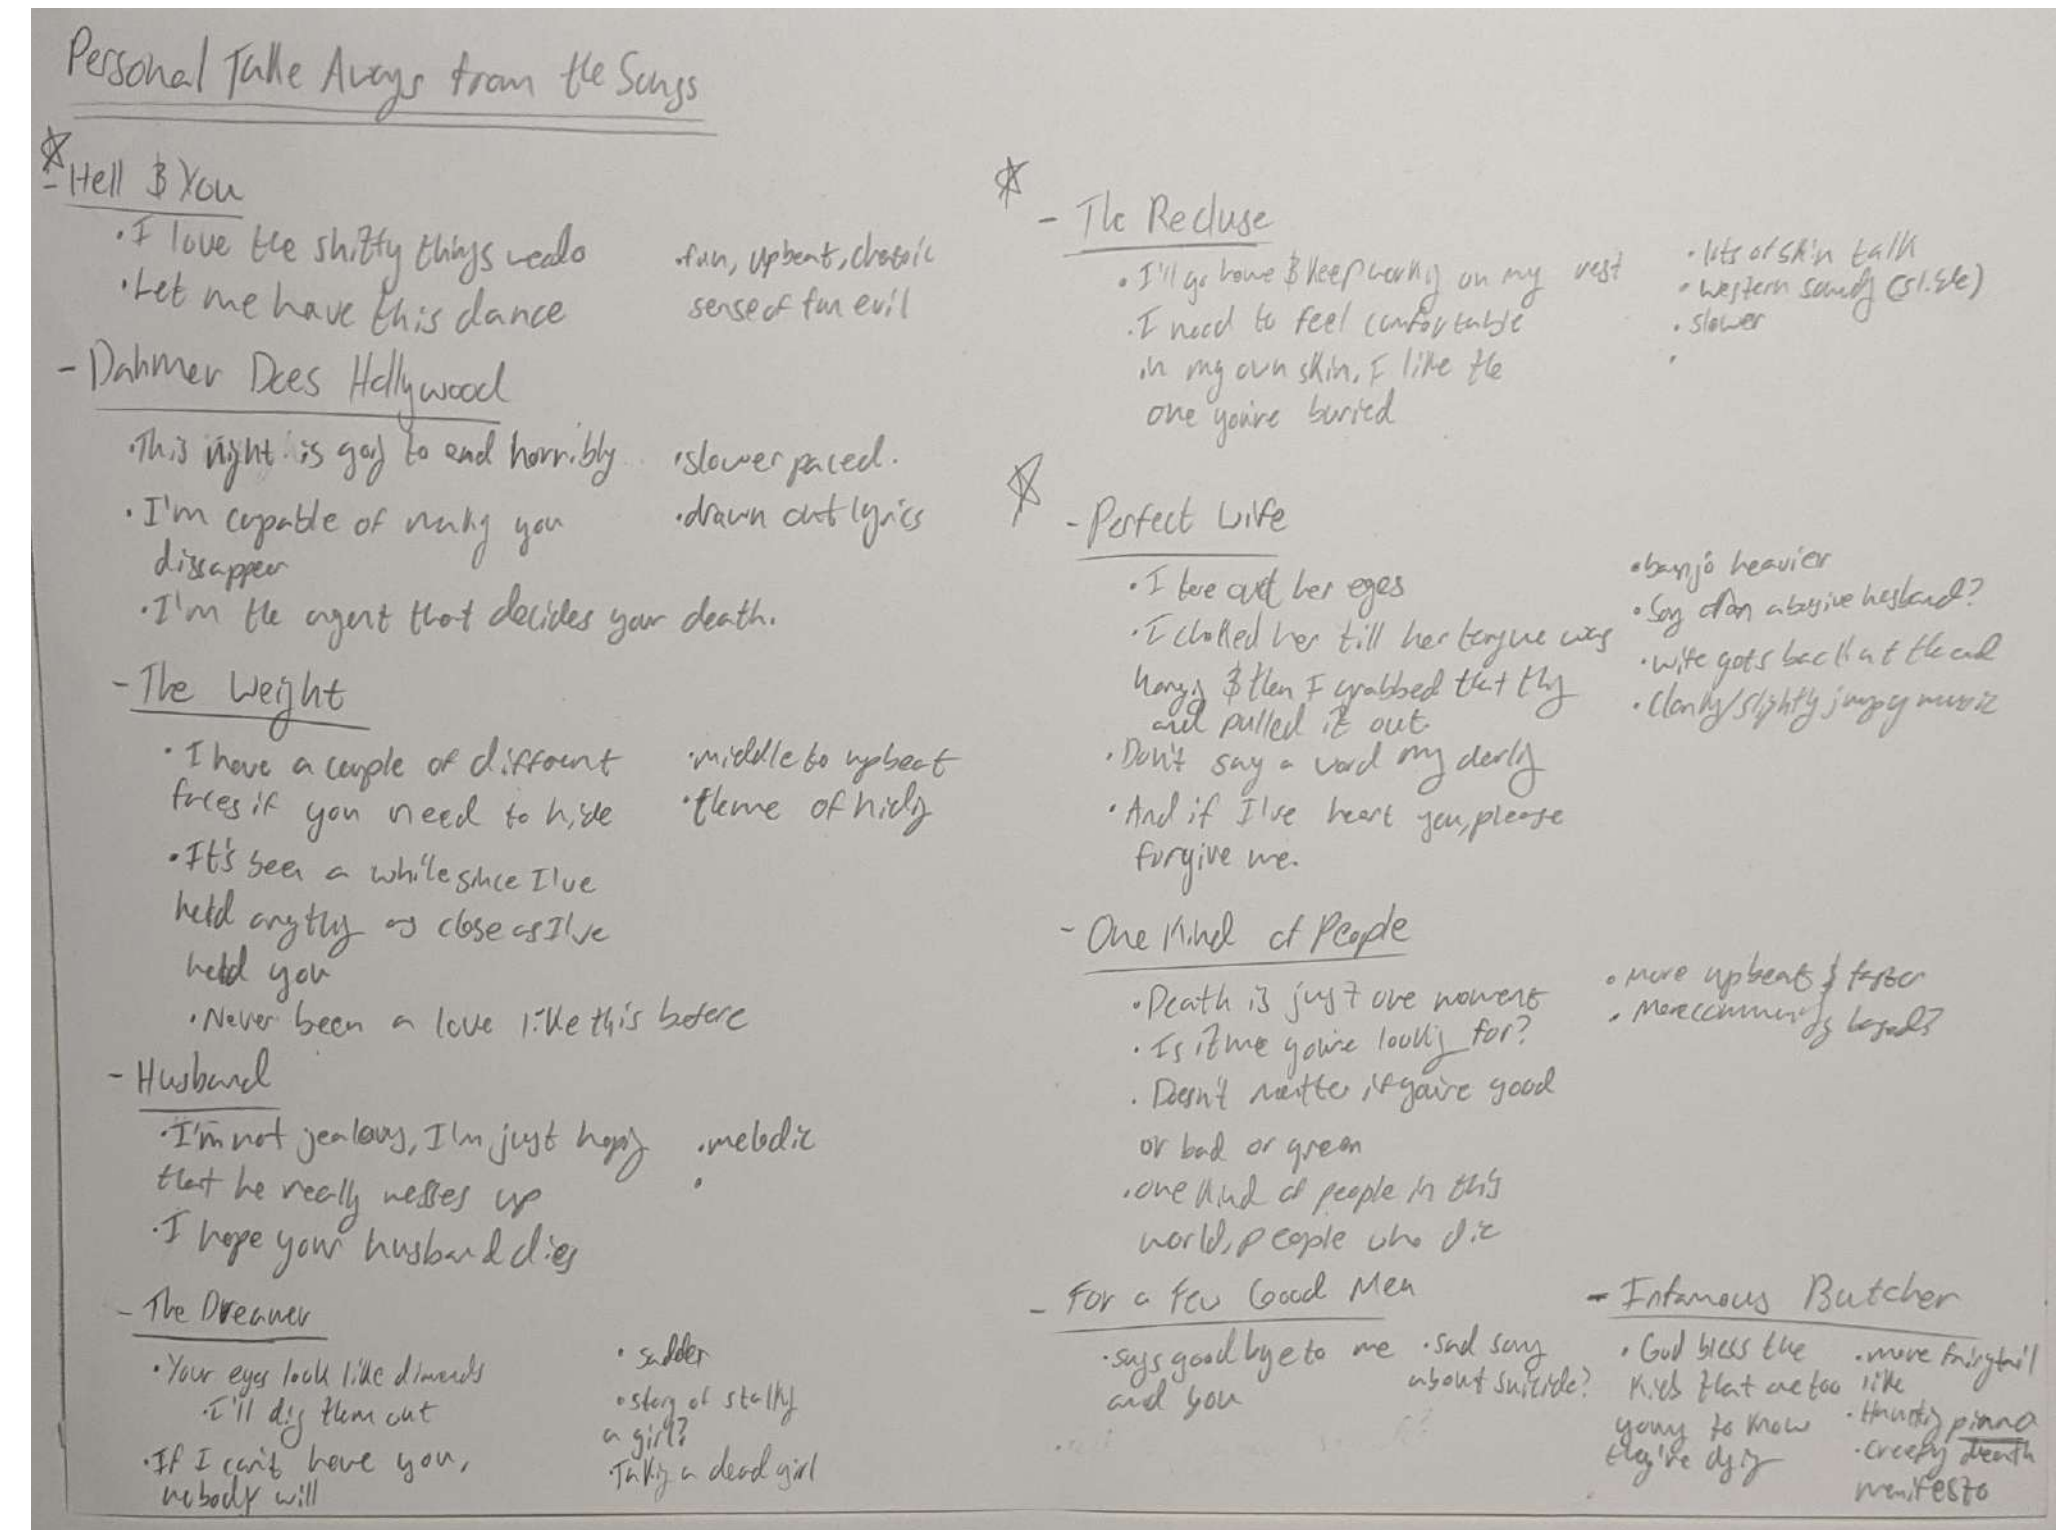 Personal Take Aways from the Songs
- Hell & You
· I love the shitty things we do
· Let me have this dance
· fun, upbeat, chatoic
sense of fun evil
- Dahmer Does Hollywood
· This night is going to end horribly
· I'm capable of making you
dissappear
· I'm the agent that decides your death.
· slower paced.
· drawn out lyrics
- The Weight
· I have a couple of different
faces if you need to hide
· It's been a while since I've
held anything as close as I've
held you
· Never been a love like this before
· middle to upbeat
· theme of hiding
- Husband
· I'm not jealous, I'm just hoping
that he really messes up
· I hope your husband dies
· melodic
·
- The Dreamer
· Your eyes look like dimends
· I'll dig them out
· If I can't have you,
nobody will
· sadder
· story of stalking
a girl?
· Taking a dead girl
- The Recluse
· I'll go home & keep working on my vest
· I need to feel comfortable
in my own skin, I like the
one you're buried
· lots of skin talk
· western sounding (slide)
· slower
·
- Perfect Wife
· I tore out her eyes
· I choked her till her tongue was
hanging & then I grabbed that thing
and pulled it out
· Don't say a word my darling
· And if I've heart you, please
forgive me.
· banjo heavier
· Song of an abusive husband?
· wife gets back at the end
· clanky/slightly jumpy music
- One Kind of People
· Death is just one moment
· Is it me you're looking for?
· Doesn't matter if you're good
or bad or green
· one kind of people in this
world, people who die
· more upbeat & faster
· more community based?
- For a Few Good Men
· says good bye to me
and you
· sad song
about suicide?
- Infamous Butcher
· God bless the
kids that are too
young to know
they're dying
· more fairytail
like
· Haunting piano
· creepy death
manifesto